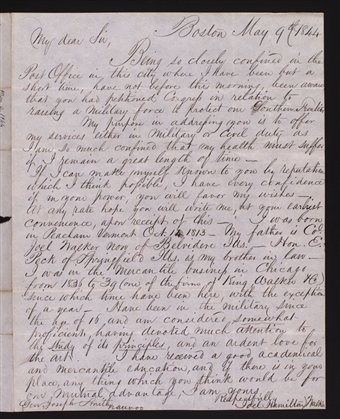 Boston May 9th 1844
My dear Sir,
Being so closely confined in the
Post Office in this city where I have been but a
short time, have not before this morning, been aware
that you has petitioned Congress in relation to
raising a Military force to protect our Southern Frontier
My purpose in addressing you is to offer
my services either in Military or Civil duty as
I am so much confined that my health must suffer
if I remain a great length of time —
If I can make myself known to you by reputation
which I think possible I have every confidence
in my power, you will favor my wishes —
At any rate hope you will write me, at your earliest
convenience, upon receipt of this — I was born
in Peacham Vermont Oct 1813 — My father is Col
Joel Walker Now of Belvidere Ills. — Hon. E.
Peck of Springfield Ills. is my brother in law —
I was in the Mercantile business in Chicago
from 1836 to 39 (one of the firm of King Walker & Co)
since which time have been here with the exception
of a year — Have been in the Military since
the age of 16, and am considered somewhat
proficient, having devoted much attention to
the study of its principles, and an ardent love for
the art. I have received a good academical
and mercantile education, and if there is in your
place, any thing which you think would be for
our mutual advantage, I am yours,
Respectfully
Gen Joseph Smith Joel Hamilton Walker
Nauvoo